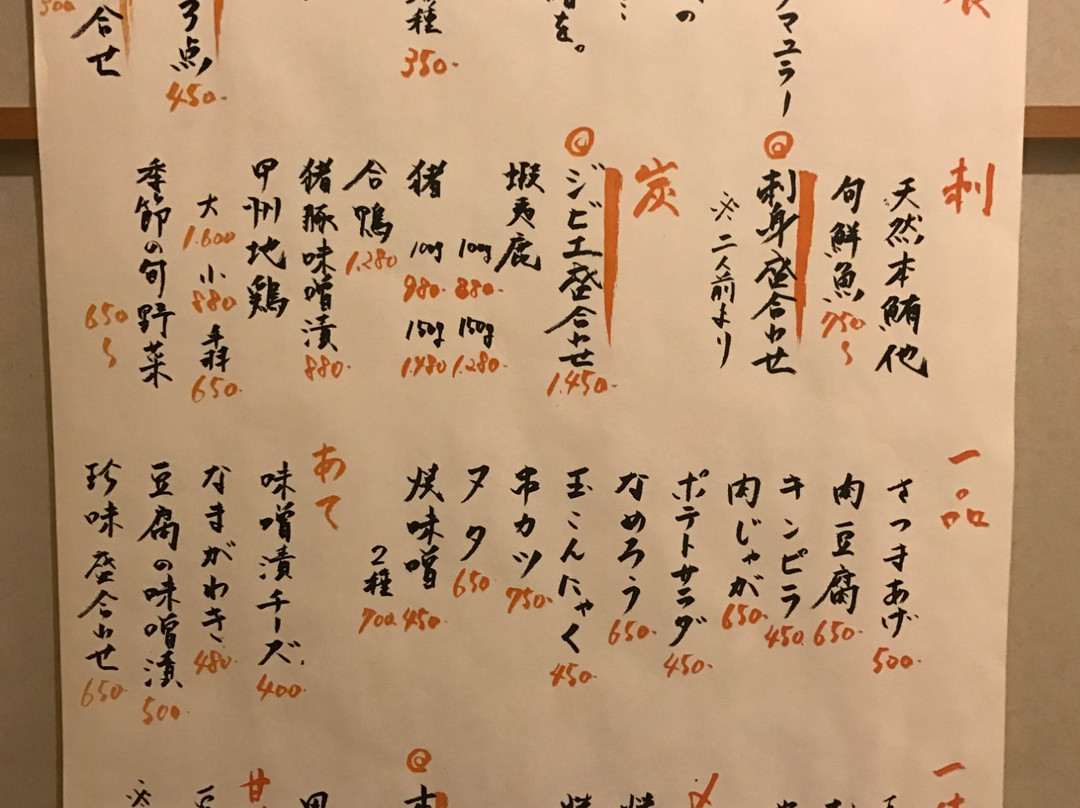 マユラー
の
を。
種
350-
3点
450-
合せ
500
刺
天然本鮪他
旬鮮魚
750〜
刺身盛合わせ
※二人前より
炭
ジビエ盛合わせ
1.450-
蝦夷鹿
100g
880-
150g
1.280-
猪
100g
980-
150g
1.480
合鴨
1.280
猪豚味噌漬
880-
甲州地鶏
大
1.600
小
880
650-
季節の旬野菜
650〜
一品
さつまあげ
500-
肉豆腐
650-
キンピラ
450-
肉じゃが
650-
ポテトサラダ
450-
なめろう
650-
玉こんにゃく
450-
串カツ
750-
ヌタ
650
焼味噌
450-
2種
700
あて
味噌漬チーズ
400-
なまがわき
480-
豆腐の味噌漬
500-
珍味盛合わせ
650-
一
〆
甘
※